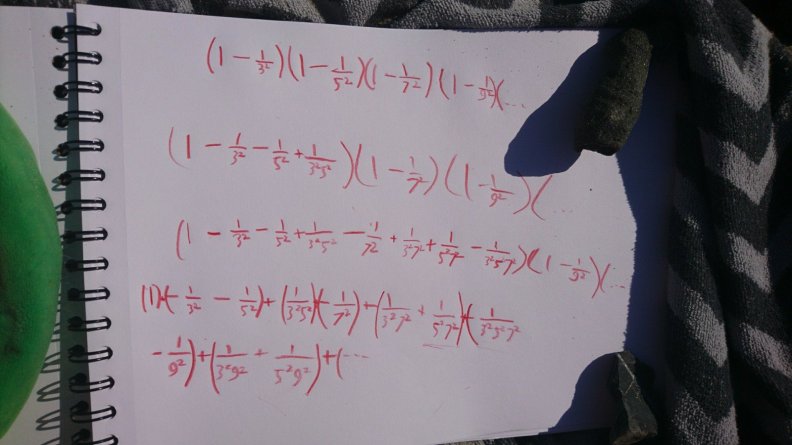 (1 - 1/3²)(1 - 1/5²)(1 - 1/7²)(1 - 1/9²)(...
(1 - 1/3² - 1/5² + 1/3²5²)(1 - 1/7²)(1 - 1/9²)(...
(1 - 1/3² - 1/5² + 1/3²5² - 1/7² + 1/3²7² + 1/5²7² - 1/3²5²7²)(1 - 1/9²)(...
(1)+(- 1/3² - 1/5²)+(1/3²5²)(- 1/7²)+(1/3²7² + 1/5²7²)(- 1/3²5²7²
- 1/9²)+(1/3²9² + 1/5²9²)+(...